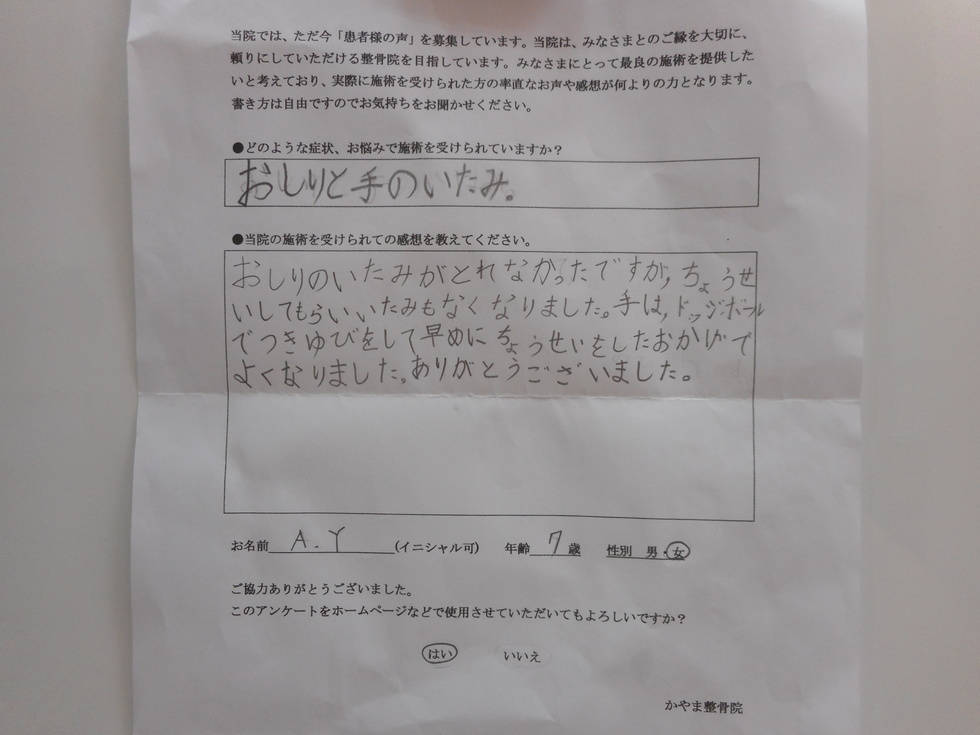 当院では、ただ今「患者様の声」を募集しています。当院は、みなさまとのご縁を大切に、
頼りにしていただける整骨院を目指しています。みなさまにとって最良の施術を提供した
いと考えており、実際に施術を受けられた方の率直なお声や感想が何よりの力となります。
書き方は自由ですのでお気持ちをお聞かせください。
●どのような症状、お悩みで施術を受けられていますか？
おしりと手のいたみ。
●当院の施術を受けられての感想を教えてください。
おしりのいたみがとれなかったですが,ちょうせ
いしてもらいいたみもなくなりました。手は,ドッジボール
でつきゆびをして早めにちょうせいをしたおかげで
よくなりました。ありがとうございました。
お名前 A.Y (イニシャル可) 年齢 7 歳 性別 男・女
ご協力ありがとうございました。
このアンケートをホームページなどで使用させていただいてもよろしいですか？
はい いいえ
かやま整骨院